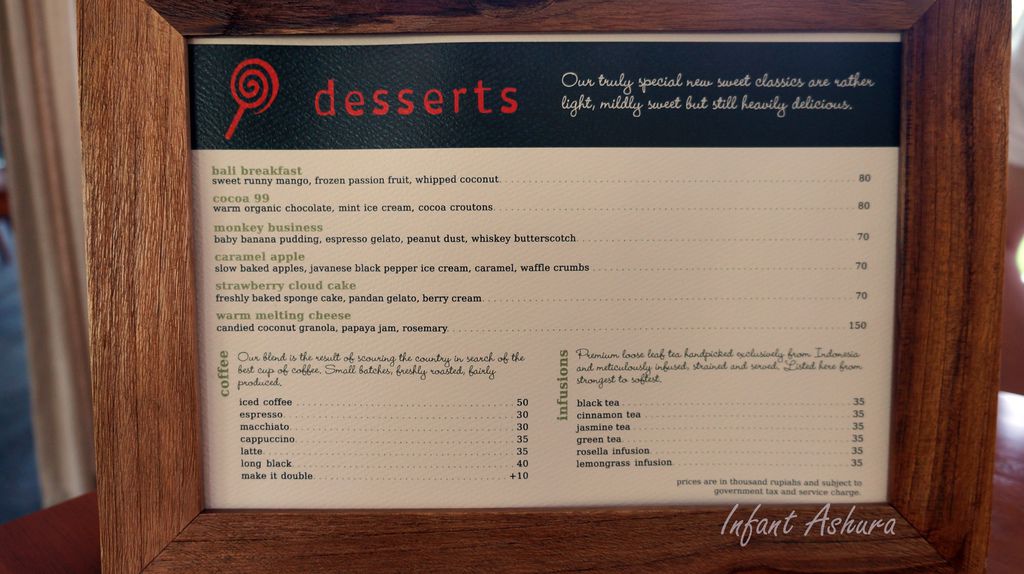 desserts
Our truly special new sweet classics are rather
light, mildly sweet but still heavily delicious.
bali breakfast
sweet runny mango, frozen passion fruit, whipped coconut 80
cocoa 99
warm organic chocolate, mint ice cream, cocoa croutons 80
monkey business
baby banana pudding, espresso gelato, peanut dust, whiskey butterscotch 70
caramel apple
slow baked apples, javanese black pepper ice cream, caramel, waffle crumbs 70
strawberry cloud cake
freshly baked sponge cake, pandan gelato, berry cream 70
warm melting cheese
candied coconut granola, papaya jam, rosemary 150
coffee
Our blend is the result of scouring the country in search of the
best cup of coffee. Small batches, freshly roasted, fairly
produced.
iced coffee 50
espresso 30
macchiato 30
cappuccino 35
latte 35
long black 40
make it double +10
infusions
Premium loose leaf tea handpicked exclusively from Indonesia
and meticulously infused, strained and served. Listed here from
strongest to softest.
black tea 35
cinnamon tea 35
jasmine tea 35
green tea 35
rosella infusion 35
lemongrass infusion 35
prices are in thousand rupiahs and subject to
government tax and service charge.
Infant Ashura